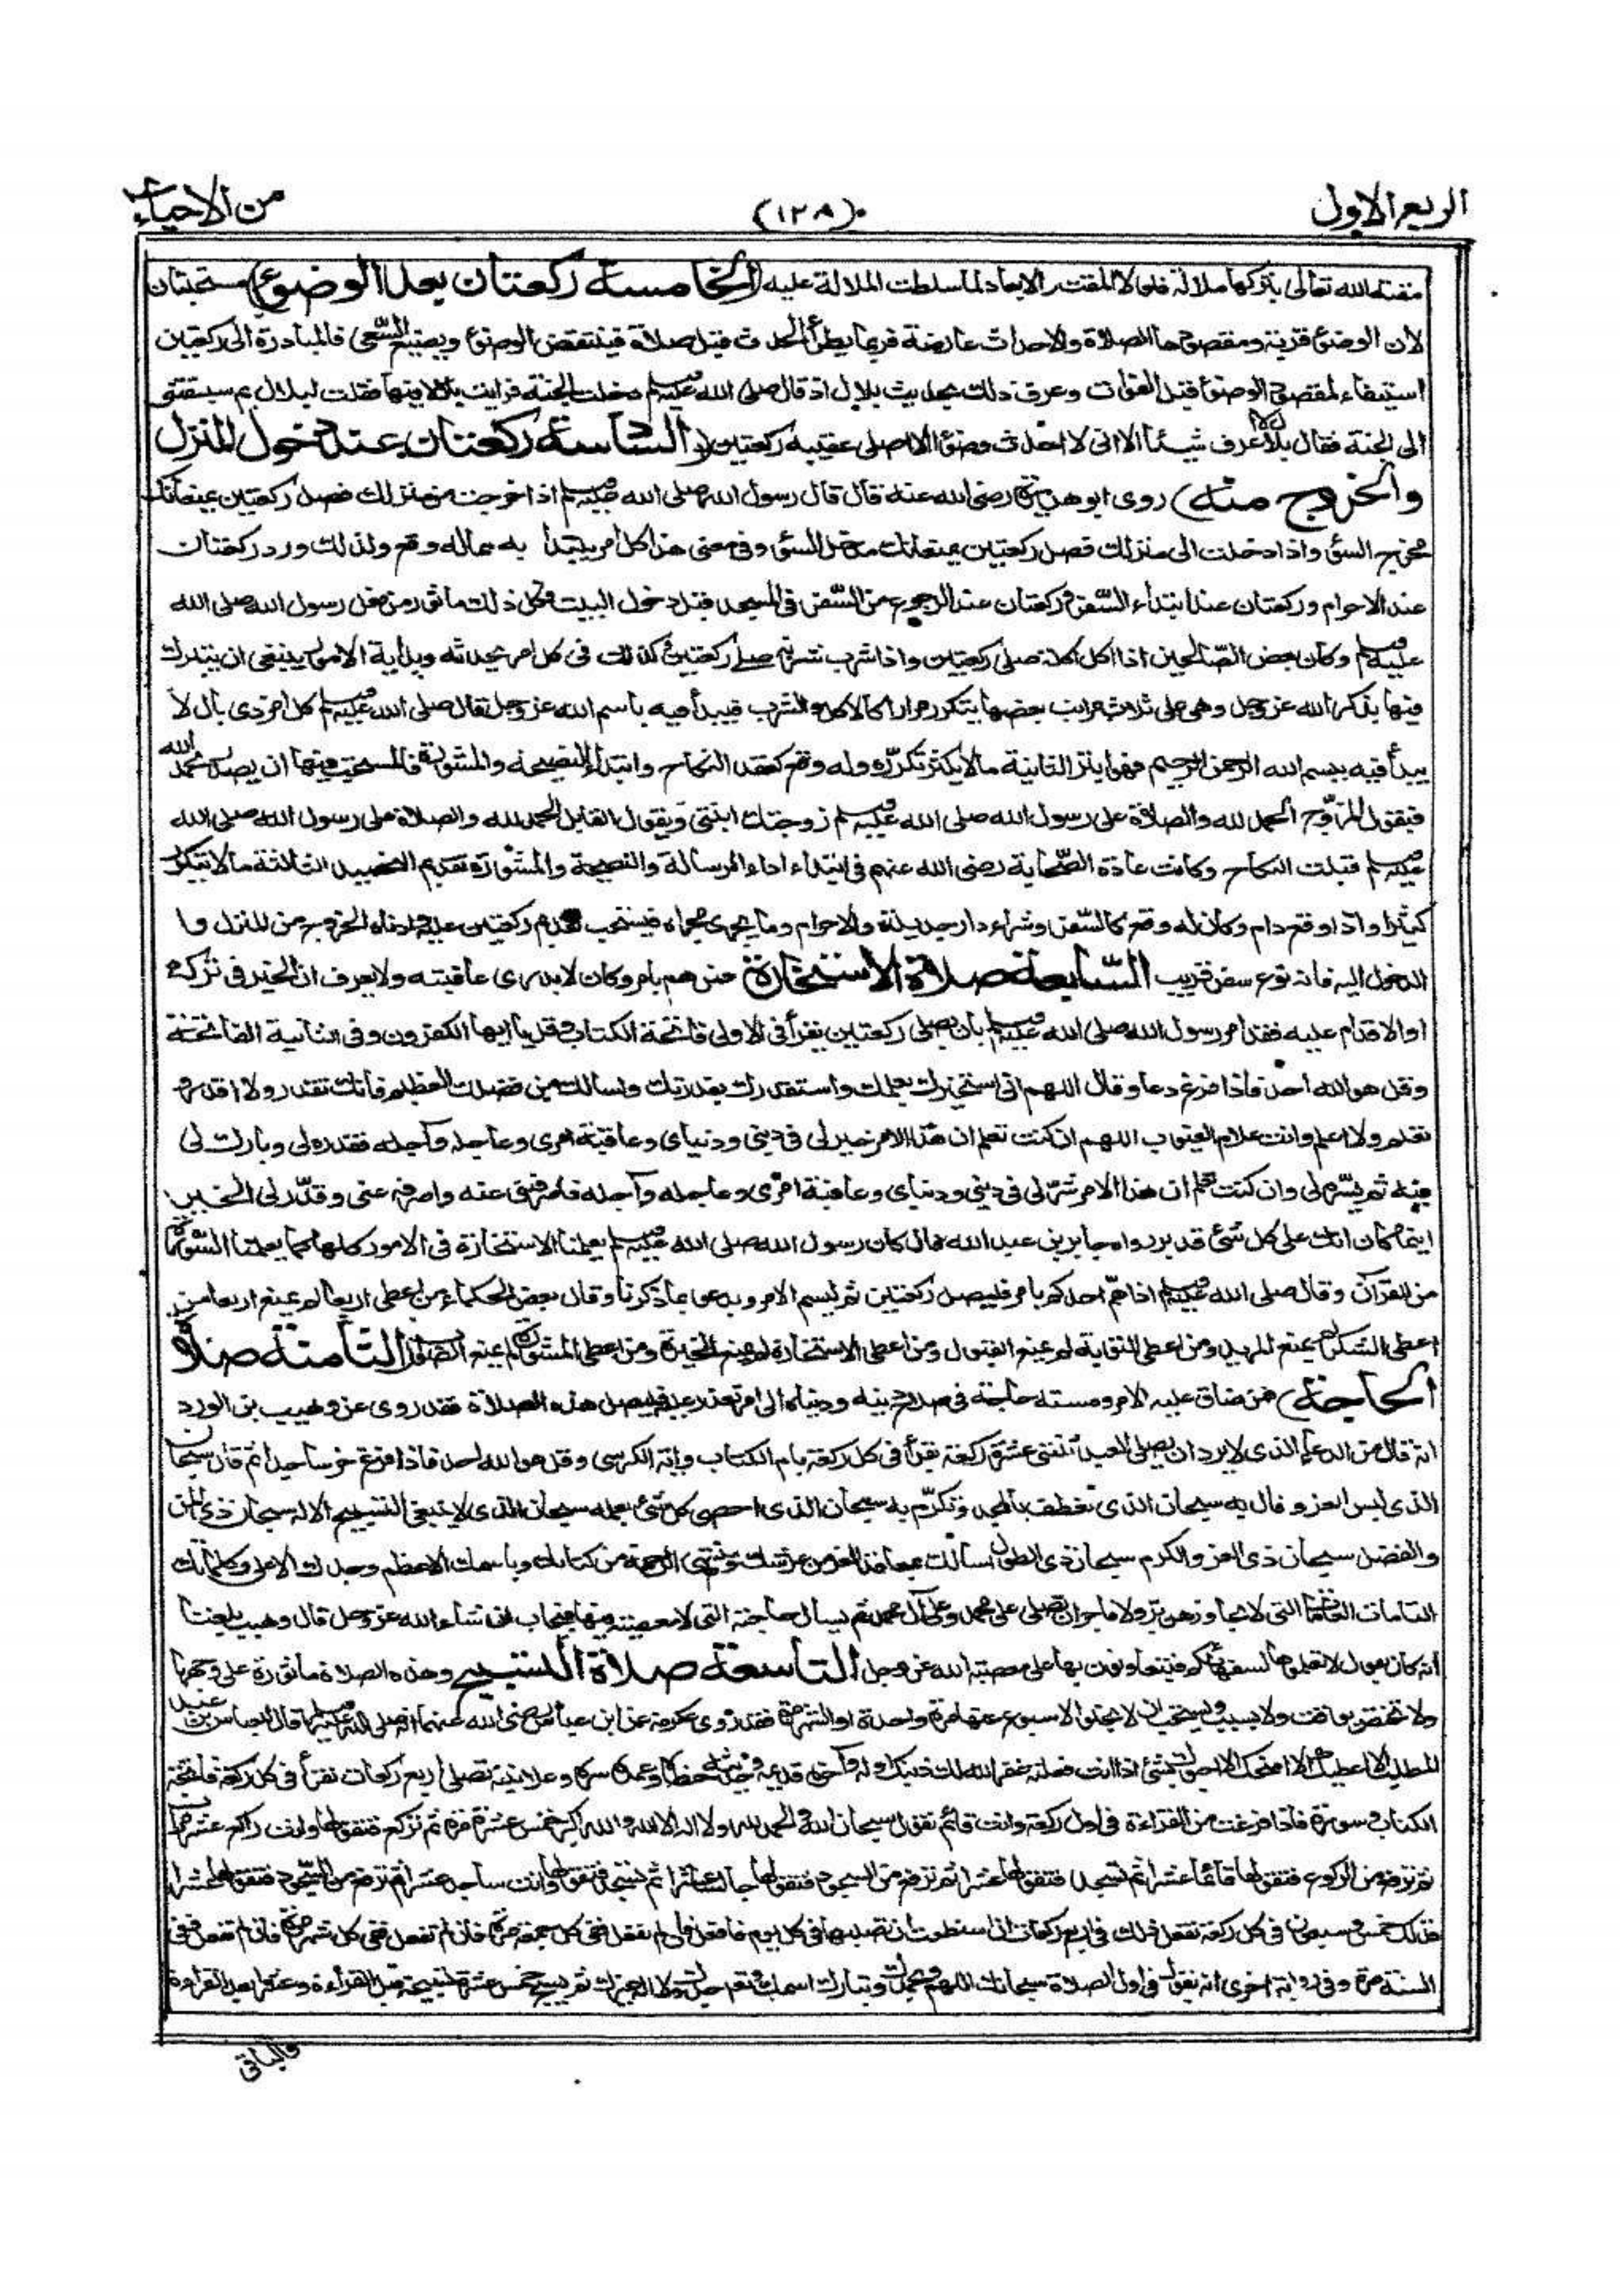 الربع الاول
(١٢٨)
من الاحياء
مقته الله تعالى بتركها ملالة فلولا المقت والابعاد لما سلطت الملالة عليه (الخامسة ركعتان بعد الوضوء) مستحبتان
لان الوضوء قربة ومقصودها الصلاة والاحداث عارضة فربما يطرأ الحدث قبل صلاة فينتقض الوضوء ويضيع السعي فالمبادرة الى ركعتين
استيفاء لمقصود الوضوء قبل الفوات وعرف ذلك بحديث بلال اذ قال صلى الله عليه وسلم دخلت الجنة فرايت بلالا فيها فقلت لبلال بم سبقتنى
الى الجنة فقال بلال لا اعرف شيئا الا انى لا احدث وضوء الا اصلى عقيبه ركعتين (السادسة ركعتان عند دخول المنزل
والخروج منه) روى ابو هريرة رضى الله عنه قال قال رسول الله صلى الله عليه وسلم اذا خرجت من منزلك فصل ركعتين يمنعانك
مخرج السوء واذا دخلت الى منزلك فصل ركعتين يمنعانك مدخل السوء وفى معنى هذا كل امر يبتدأ به مما له وقع ولذلك ورد ركعتان
عند الاحرام وركعتان عند ابتداء السفر وركعتان عند الرجوع من السفر فى المسجد قبل دخول البيت فكل ذلك ماثور من فعل رسول الله صلى الله
عليه وسلم وكان بعض الصالحين اذا اكل اكلة صلى ركعتين واذا شرب شربة صلى ركعتين وكذلك فى كل امر يحدثه وبداية الامور ينبغى ان يتبرك
فيها بذكر الله عز وجل وهى على ثلاث مراتب بعضها يتكرر مرارا كالاكل والشرب فيبدأ فيه باسم الله عز وجل قال صلى الله عليه وسلم كل امر ذى بال لا
يبدأ فيه ببسم الله الرحمن الرحيم فهو ابتر الثانية ما لا يكثر تكرره وله وقع كعقد النكاح وابتداء النصيحة والمشورة فالمستحب فيها ان يصدر بحمد الله
فيقول المزوج الحمد لله والصلاة على رسول الله صلى الله عليه وسلم زوجتك ابنتى ويقول القابل الحمد لله والصلاة على رسول الله صلى الله
عليه وسلم قبلت النكاح وكانت عادة الصحابة رضى الله عنهم فى ابتداء اداء الرسالة والنصيحة والمشورة تقديم التحميد الثالثة ما لا يتكرر
كثيرا واذا وقع دام وكان له وقع كالسفر وشراء دار جديدة والاحرام وما يجرى مجراه فيستحب تقديم ركعتين عليه وادناه الخروج من المنزل وا
الدخول اليه فانه نوع سفر قريب السابعة صلاة الاستخارة فمن هم بامر وكان لا يدرى عاقبته ولا يعرف ان الخير فى تركه
او الاقدام عليه فقد امر رسول الله صلى الله عليه وسلم بان يصلى ركعتين يقرأ فى الاولى فاتحة الكتاب وقل يا ايها الكفرون وفى الثانية الفاتحة
وقل هو الله احد فاذا فرغ دعا وقال اللهم انى استخيرك بعلمك واستقدرك بقدرتك واسالك من فضلك العظيم فانك تقدر ولا اقدر و
تعلم ولا اعلم وانت علام الغيوب اللهم ان كنت تعلم ان هذا الامر خير لى فى دينى ودنياى وعاقبة امرى وعاجله وآجله فقدره لى وبارك لى
فيه ثم يسره لى وان كنت تعلم ان هذا الامر شر لى فى دينى ودنياى وعاقبة امرى وعاجله وآجله فاصرفنى عنه واصرفه عنى وقدر لى الخير
اينما كان انك على كل شئ قدير رواه جابر بن عبد الله قال كان رسول الله صلى الله عليه وسلم يعلمنا الاستخارة فى الامور كلها كما يعلمنا السورة
من القرآن وقال صلى الله عليه وسلم اذا هم احدكم بامر فليصل ركعتين ثم ليسم الامر ويدعو بما ذكرنا وقال بعض الحكماء من اعطى اربعا لم يمنع اربعا من
اعطى الشكر لم يمنع المزيد ومن اعطى التوبة لم يمنع القبول ومن اعطى الاستخارة لم يمنع الخيرة ومن اعطى المشورة لم يمنع الصواب الثامنة صلاة
الحاجة) فمن ضاق عليه الامر ومسته حاجة فى صلاح دينه ودنياه الى امر تعذر عليه فليصل هذه الصلاة فقد روى عن وهيب بن الورد
انه قال من الدعاء الذى لا يرد ان يصلى العبد ثنتى عشرة ركعة يقرأ فى كل ركعة بام الكتاب وآية الكرسى وقل هو الله احد فاذا فرغ خر ساجدا ثم قال سبحان
الذى لبس العز وقال به سبحان الذى تعطف بالمجد وتكرم به سبحان الذى احصى كل شئ بعلمه سبحان الذى لا ينبغى التسبيح الا له سبحان ذى المن
والفضل سبحان ذى العز والكرم سبحان ذى الطول اسالك بمعاقد العز من عرشك ومنتهى الرحمة من كتابك وباسمك الاعظم وجدك الاعلى وكلماتك
التامات العامات التى لا يجاوزهن بر ولا فاجر ان تصلى على محمد وعلى آل محمد ثم يسال حاجته التى لا معصية فيها فيجاب ان شاء الله عز وجل قال وهيب بلغنا
انه كان يقول لا تعلموها لسفهائكم فيتعاونون بها على معصية الله عز وجل التاسعة صلاة التسبيح وهذه الصلاة ماثورة على وجهها
ولا تختص بوقت ولا بسبب ويستحب ان لا يخلو الاسبوع عنها مرة واحدة او الشهر مرة فقد روى عكرمة عن ابن عباس رضى الله عنهما انه صلى الله عليه وسلم قال للعباس بن عبد
المطلب الا اعطيك الا امنحك الا احبوك بشئ اذا انت فعلته غفر الله لك ذنبك اوله وآخره قديمه وحديثه خطأه وعمده سره وعلانيته تصلى اربع ركعات تقرأ فى كل ركعة فاتحة
الكتاب وسورة فاذا فرغت من القراءة فى اول ركعة وانت قائم تقول سبحان الله والحمد لله ولا اله الا الله والله اكبر خمس عشرة مرة ثم تركع فتقولها وانت راكع عشر مرات
ثم ترفع من الركوع فتقولها قائما عشرا ثم تسجد فتقولها عشرا ثم ترفع من السجود فتقولها جالسا عشرا ثم تسجد فتقولها وانت ساجد عشرا ثم ترفع من السجود فتقولها عشرا
فذلك خمس وسبعون فى كل ركعة تفعل ذلك فى اربع ركعات ان استطعت ان تصليها فى كل يوم فافعل فان لم تفعل ففى كل جمعة مرة فان لم تفعل ففى كل شهر مرة فان لم تفعل ففى
السنة مرة وفى رواية اخرى انه يقول فى اول الصلاة سبحانك اللهم وبحمدك وتبارك اسمك وتعالى جدك ولا اله غيرك ثم يسبح خمس عشرة تسبيحة قبل القراءة وعشرا بعد القراءة
والباقى